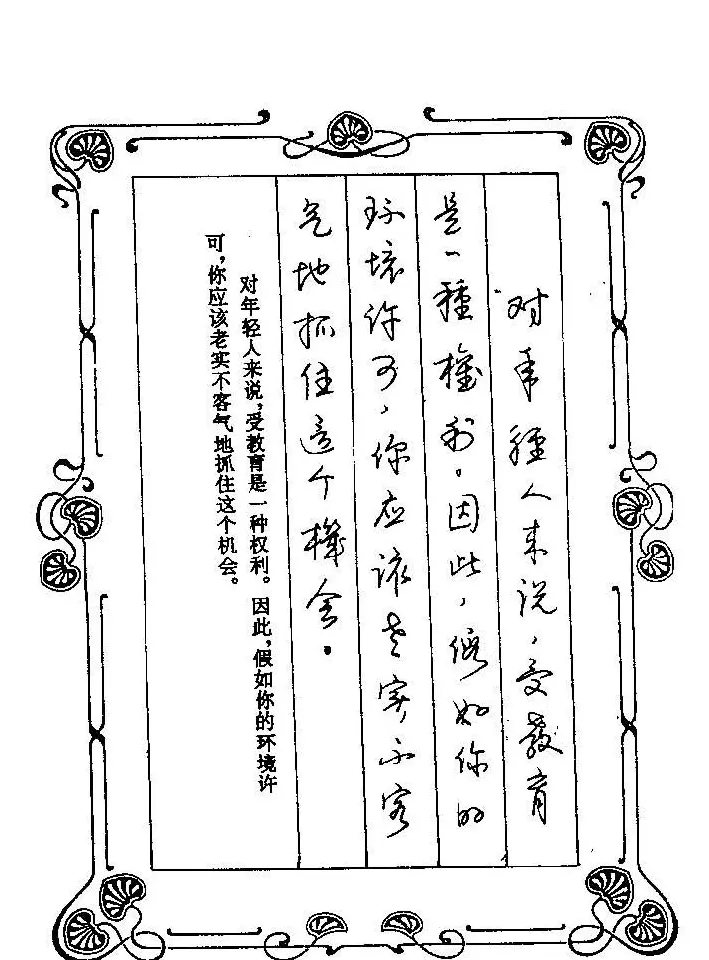 对年轻人来说，受教育
是一種權利。因此，假如你的
环境许可，你应该老实不客
气地抓住這个機会。
对年轻人来说，受教育是一种权利。因此，假如你的环境许
可，你应该老实不客气地抓住这个机会。